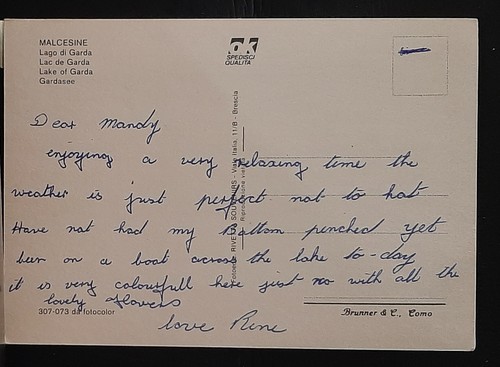 MALCESINE
Lago di Garda
Lac de Garda
Lake of Garda
Gardasee
dk
SPEDISCI
QUALITÀ
Dear Mandy
enjoying a very relaxing time the
weather is just perfect not to hot
Have not had my Bottom penched yet
been on a boat across the lake to-day
it is very colourfull here just no with all the
lovely flowers
love Rene
307-073 da fotocolor
Brunner & C., Como
Fotocolor RIVETTA SOUVENIRS - Viale Italia, 11/B - Brescia
Riproduzione